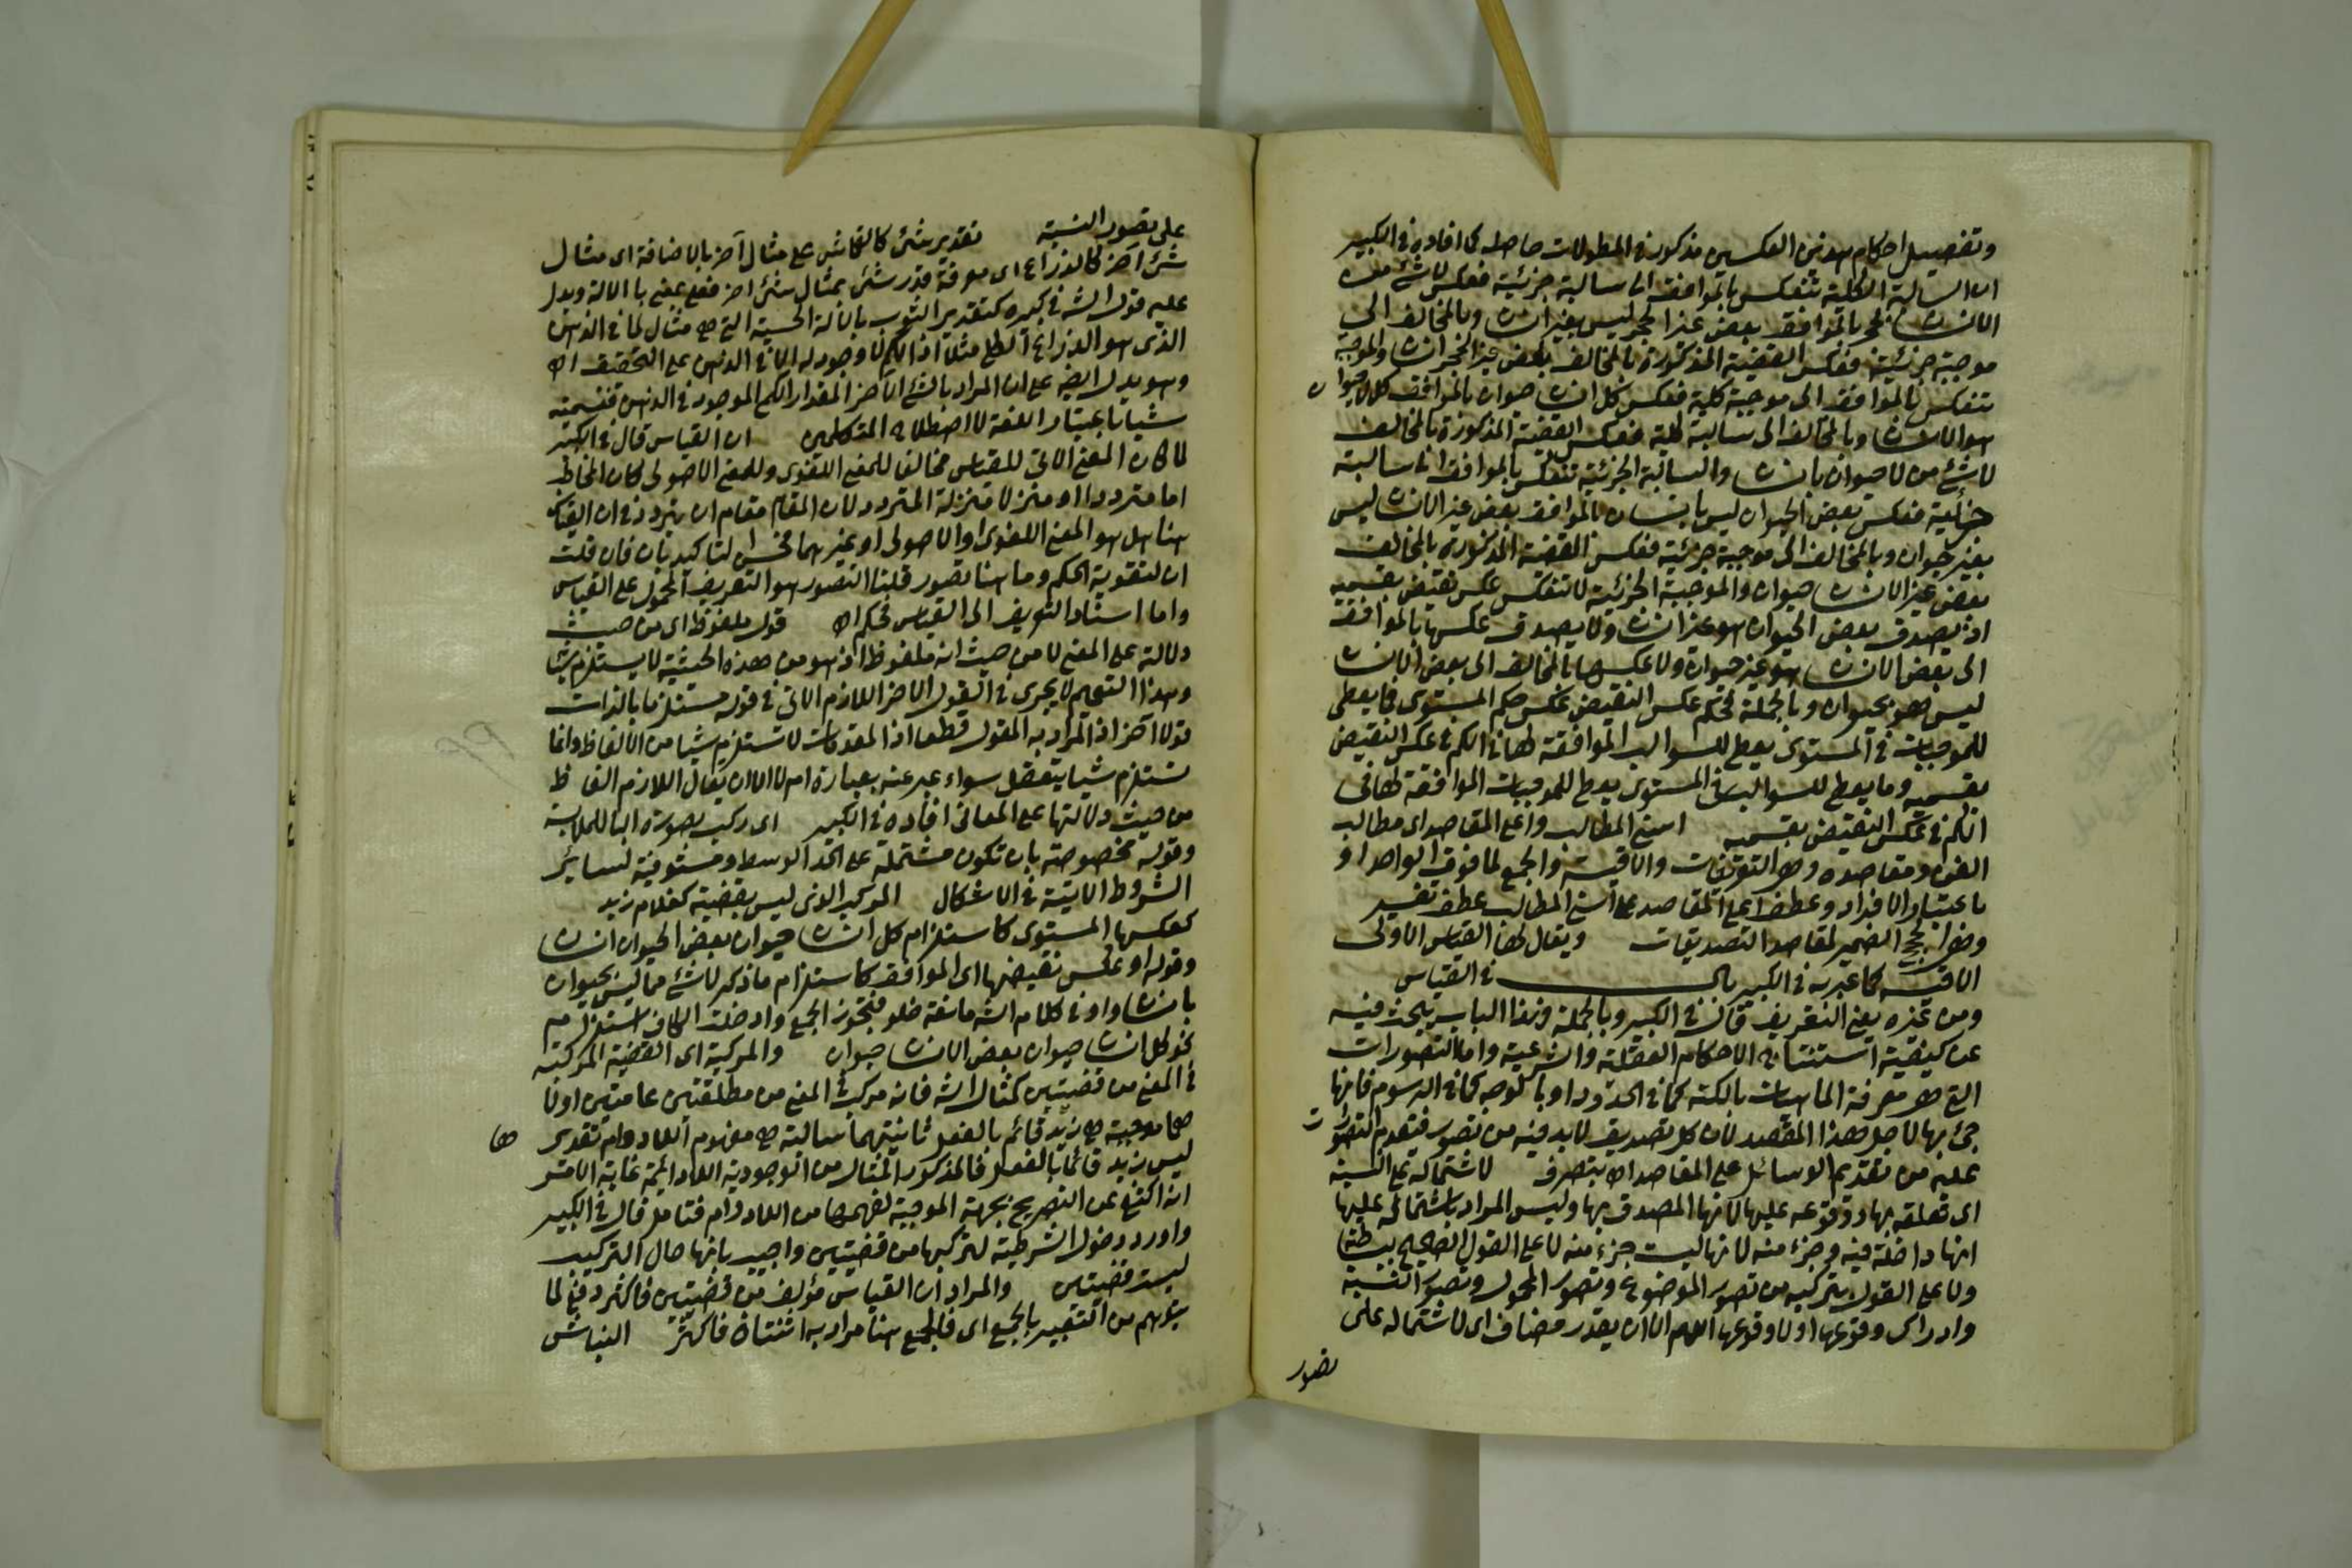 وتفصيل احكام هذين العكسين مذكورة في المطولات حاصله كما افاده في الكبير
ان السالبة الكلية تنعكس بالموافق الى سالبة جزئية فعكس لا شئ من
الانسان بحجر بالموافق بعض غير الحجر ليس بغير انسان وبالمخالف الى
موجبة جزئية فعكس القضية المذكورة بالمخالف بعض غير الحجر انسان والموجبة
تنعكس بالموافق الى موجبة كلية فعكس كل انسان حيوان بالموافق كل لا حيوان
هو لا انسان وبالمخالف الى سالبة كلية فعكس القضية المذكورة بالمخالف
لا شئ من لا حيوان بانسان والسالبة الجزئية تنعكس بالموافق الى سالبة
جزئية فعكس بعض الحيوان ليس بانسان بالموافق بعض غير الانسان ليس
بغير حيوان وبالمخالف الى موجبة جزئية فعكس القضية المذكورة بالمخالف
بعض غير الانسان حيوان والموجبة الجزئية لا تنعكس عكس نقيض بقسميه
اذ يصدق بعض الحيوان هو غير انسان ولا يصدق عكسها بالموافقة
الى بعض الانسان هو غير حيوان ولا عكسها بالمخالف الى بعض الانسان
ليس هو بحيوان وبالجملة فحكم عكس النقيض عكس حكم المستوى فما يعطى
للموجبات في المستوى يعطى للسوالب الموافقة لها في الكم في عكس النقيض
بقسميه وما يعطى للسوالب في المستوى يعطى للموجبات الموافقة لها في
الكم في عكس النقيض بقسميه اسنى المطالب واعلى المقاصد اى مطالب
الفن ومقاصده وهى التعريفات والاقيسة والجمع لما فوق الواحد او
باعتبار الافراد وعطف اعلى المقاصد على اسنى المطالب عطف تفسير
الضمير لمقاصد التصديقات ويقال لها القياس الاولى
الاقيسة كما عبر به في الكبير باب في القياس
ومن غيره يعنى التعريف قال في الكبير وبالجملة وهذا الباب يبحث فيه
عن كيفية استنتاج الاحكام العقلية والشرعية واما التصورات
التى هى معرفة الماهيات بالكنه كما في الحدود او بالوجه كما في الرسوم فانما
جئ بها لاجل هذا المقصد لان كل تصديق لابد فيه من تصور فتقدم التصورات
عليه من تقديم الوسائل على المقاصد اه بتصرف لاشتماله على النسبة
اى تعلقه بها ووقوعه عليها لانها المصدق بها وليس المراد باشتماله عليها
انها داخلة فيه وجزء منه لانها ليست جزء منه لا على القول الصحيح ببساطته
ولا على القول بتركبه من تصور الموضوع وتصور المحمول وتصور النسبة
وادراك وقوعها او لا وقوعها اللهم الا ان يقدر مضاف اى لاشتماله على
تصور
على تصور النسبة تقدير شئ كالقماش على مثال آخر بالاضافة اى مثال
شئ آخر كالذراع اى معرفة قدر شئ بمثال شئ آخر فعلى بمعنى باء الالة ويدل
عليه قول الش في كبيره كتقدير الثوب بالالة الحسية التى هى مثال لما في الذهن
الذى هو الذراع الكلى مثلا اذ الكم لا وجود له الا في الذهن على التحقيق اه
وهو يدل ايضا على ان المراد بالشئ الآخر المقدار الكم الموجود في الذهن فتسميته
شيا باعتبار اللغة لا اصطلاح المتكلمين ان القياس قال في الكبير
لما كان المعنى الاتى للقياس مخالفا للمعنى اللغوى وللمعنى الاصولى كان المخاطب
اما مترددا او منزلا منزلة المتردد لان المقام مقام ان يتردد في ان القياس
هنا هل هو المعنى اللغوى او الاصولى او غيرهما فحسن التاكيد بان فان قلت
ان لتقوية الحكم وما هنا تصور قلنا التصور هو التعريف المحمول على القياس
واما اسناد التعريف الى القياس فحكم اه قول ملفوظ اى من حيث
دلالته على المعنى لا من حيث انه ملفوظ اذ هو من هذه الحيثية لا يستلزم شيا
وهذا التعميم لا يجرى في القول الاخر اللازم الاتى في قوله مستلزما بالذات
قولا آخر اذ المراد به المعقول قطعا اذ المقدمات لا تستلزم شيا من الالفاظ وانما
تستلزم شيا يتعقل سواء عبر عنه بعبارة ام لا الا ان يقال اللازم الفاظ
من حيث دلالتها على المعانى افاده في الكبير اى ركب بصورة الباء للملابسة
وقوله مخصوصة بان تكون مشتملة على الحد الوسط ومستوفية لسائر
الشروط الاتية في الاشكال المركب الذى ليس بقضية كغلام زيد
كعكسها المستوى كاستلزام كل انسان حيوان بعض الحيوان انسان
وقوله او عكس نقيضها اى الموافق كاستلزام ما ذكر لا شئ مما ليس بحيوان
بانسان واو في كلام الش مانعة خلو فتجوز الجمع وادخلت الكاف استلزام
نحو كل انسان حيوان بعض الانسان حيوان والمركبة اى القضية المركبة
في المعنى من قضيتين كمثال الش فانه مركب في المعنى من مطلقتين عامتين اولا
هما موجبة هى زيد قائم بالفعل ثانيتهما سالبة هى مفهوم اللادوام تقديرها
ليس زيد قائما بالفعل فالمذكور المثال من الوجودية اللادائمة غاية الامر
انه اكتفى عن التصريح بجهة الموجبة لفهمها من اللادوام فتامل قال في الكبير
واورد دخول الشرطية لتركبها من قضيتين واجيب بانها حال التركيب
ليست قضيتين والمراد ان القياس مؤلف من قضيتين فاكثر دفع لما
يتوهم من التعبير بالجمع اى فالجمع هنا مراد به اثنتان فاكثر النباش